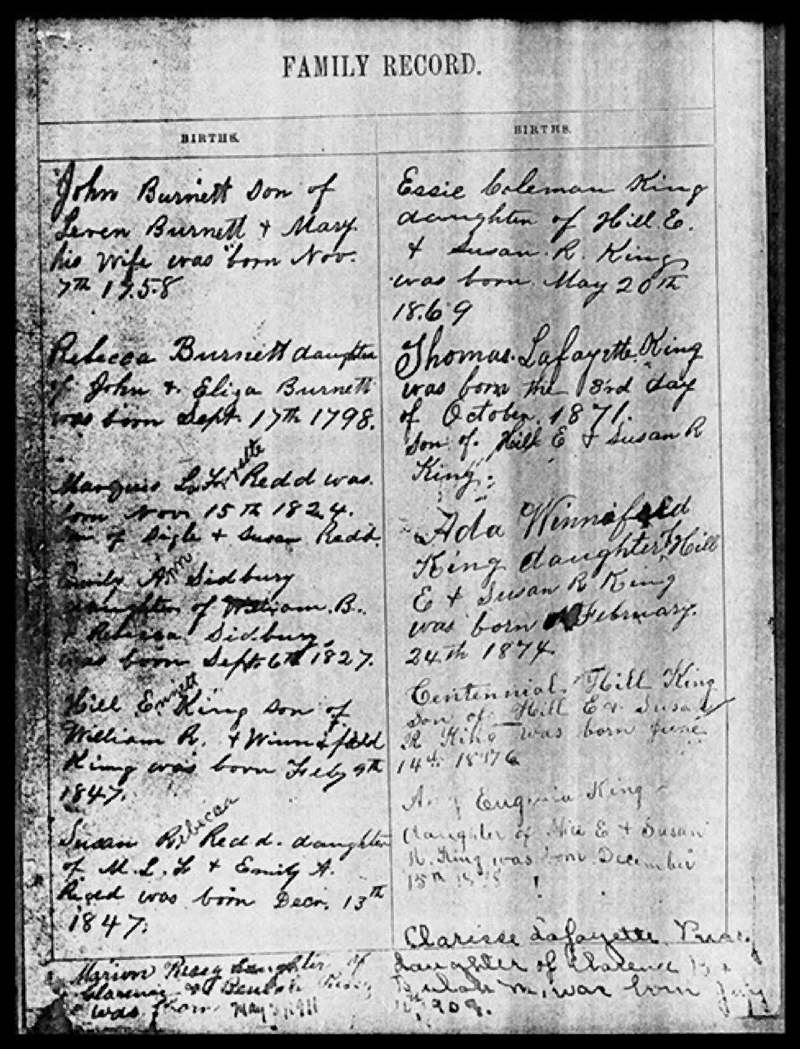 FAMILY RECORD.
BIRTHS.
John Burnett son of
Leven Burnett & Mary
his wife was born Nov.
7th 1758
Rebecca Burnett daughter
of John & Eliza Burnett
was born Sept. 17th 1798.
Marquis L. Fayette Redd was
born Nov. 15th 1824.
son of & Susan Redd.
Emily Ann Sidbury
daughter of William B.
& Rebecca Sidbury
was born Sept. 6th 1827.
Hill Emmett King son of
William R. & Winnifield
King was born Feby 9th
1847.
Susan Rebecca Redd. daughter
of M. L. F & Emily A.
Redd was born Decr. 13th
1847.
Marion daughter of
Clarence & Beulah
was born May 1911
BIRTHS.
Essie Coleman King
daughter of Hill E.
& Susan. R. King
was born May 20th
1869
Thomas Lafayette King
was born the 3rd day
of October, 1871.
son of Hill E & Susan R
King.
Ada Winnifield
King daughter of Hill
E & Susan R King
was born February.
24th 1874.
Centennial Hill King
son of Hill E & Susan
R King was born June
14th 1876
Eugenia King
daughter of E & Susan
R. King was born December
15th
Clarisse Lafayette
daughter of Clarence
Beulah M, was born July
1909.